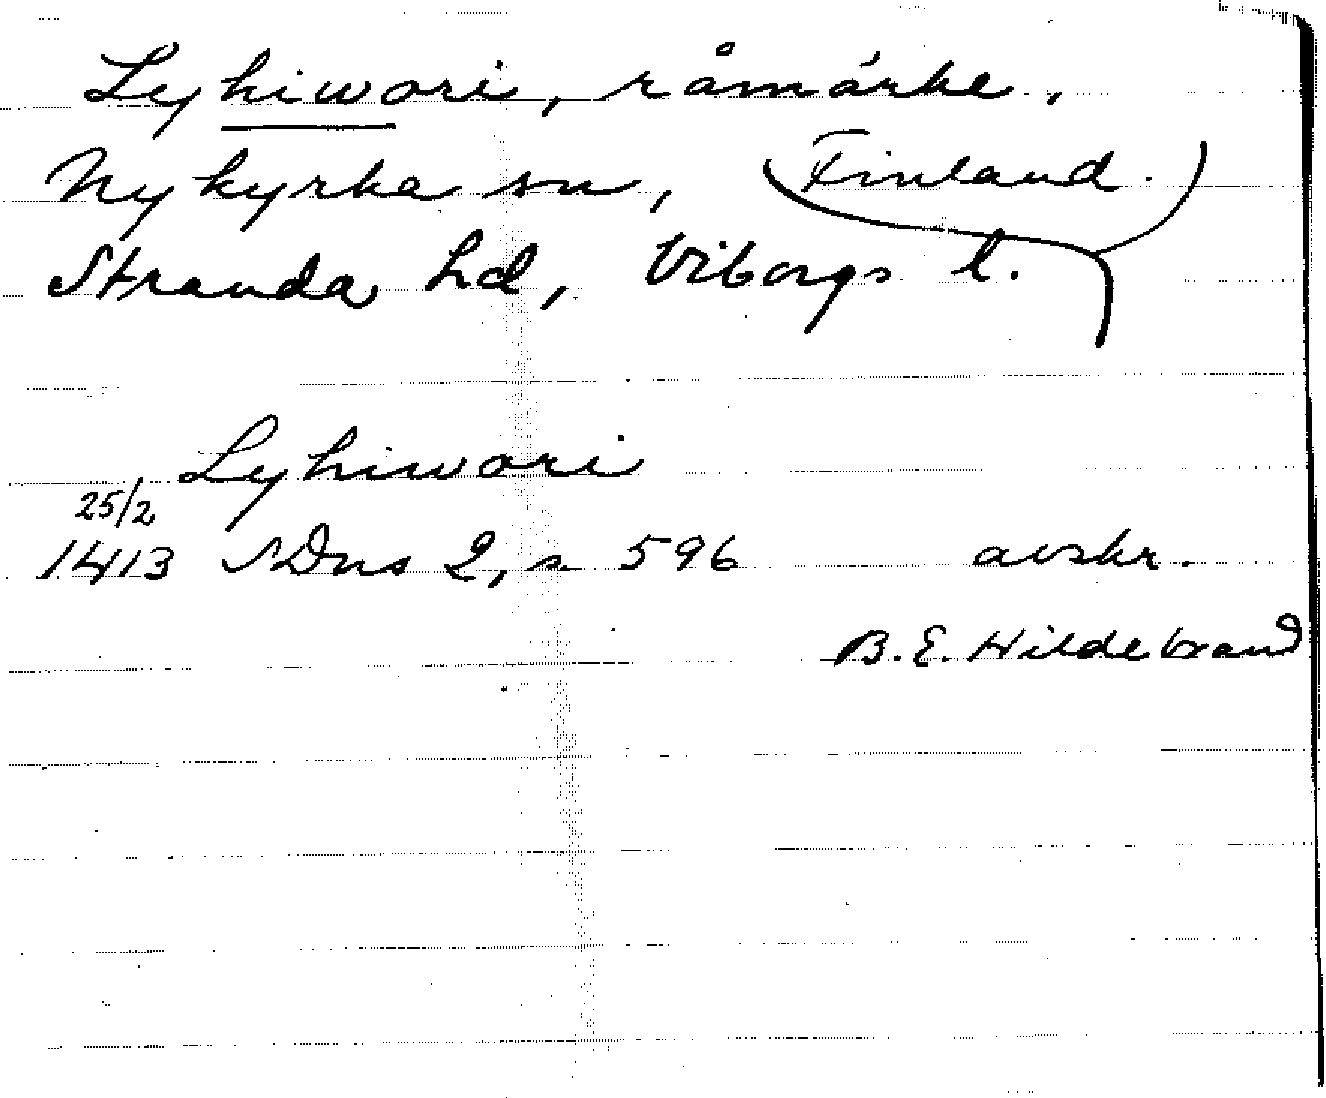 Lyhiwori, råmärke,
Nykyrka sn, (Finland.)
Stranda hd, Viborgs l.
Lyhiwori
25/2
1413 SDns 2, s 596 avskr.
B.E. Hildebrand